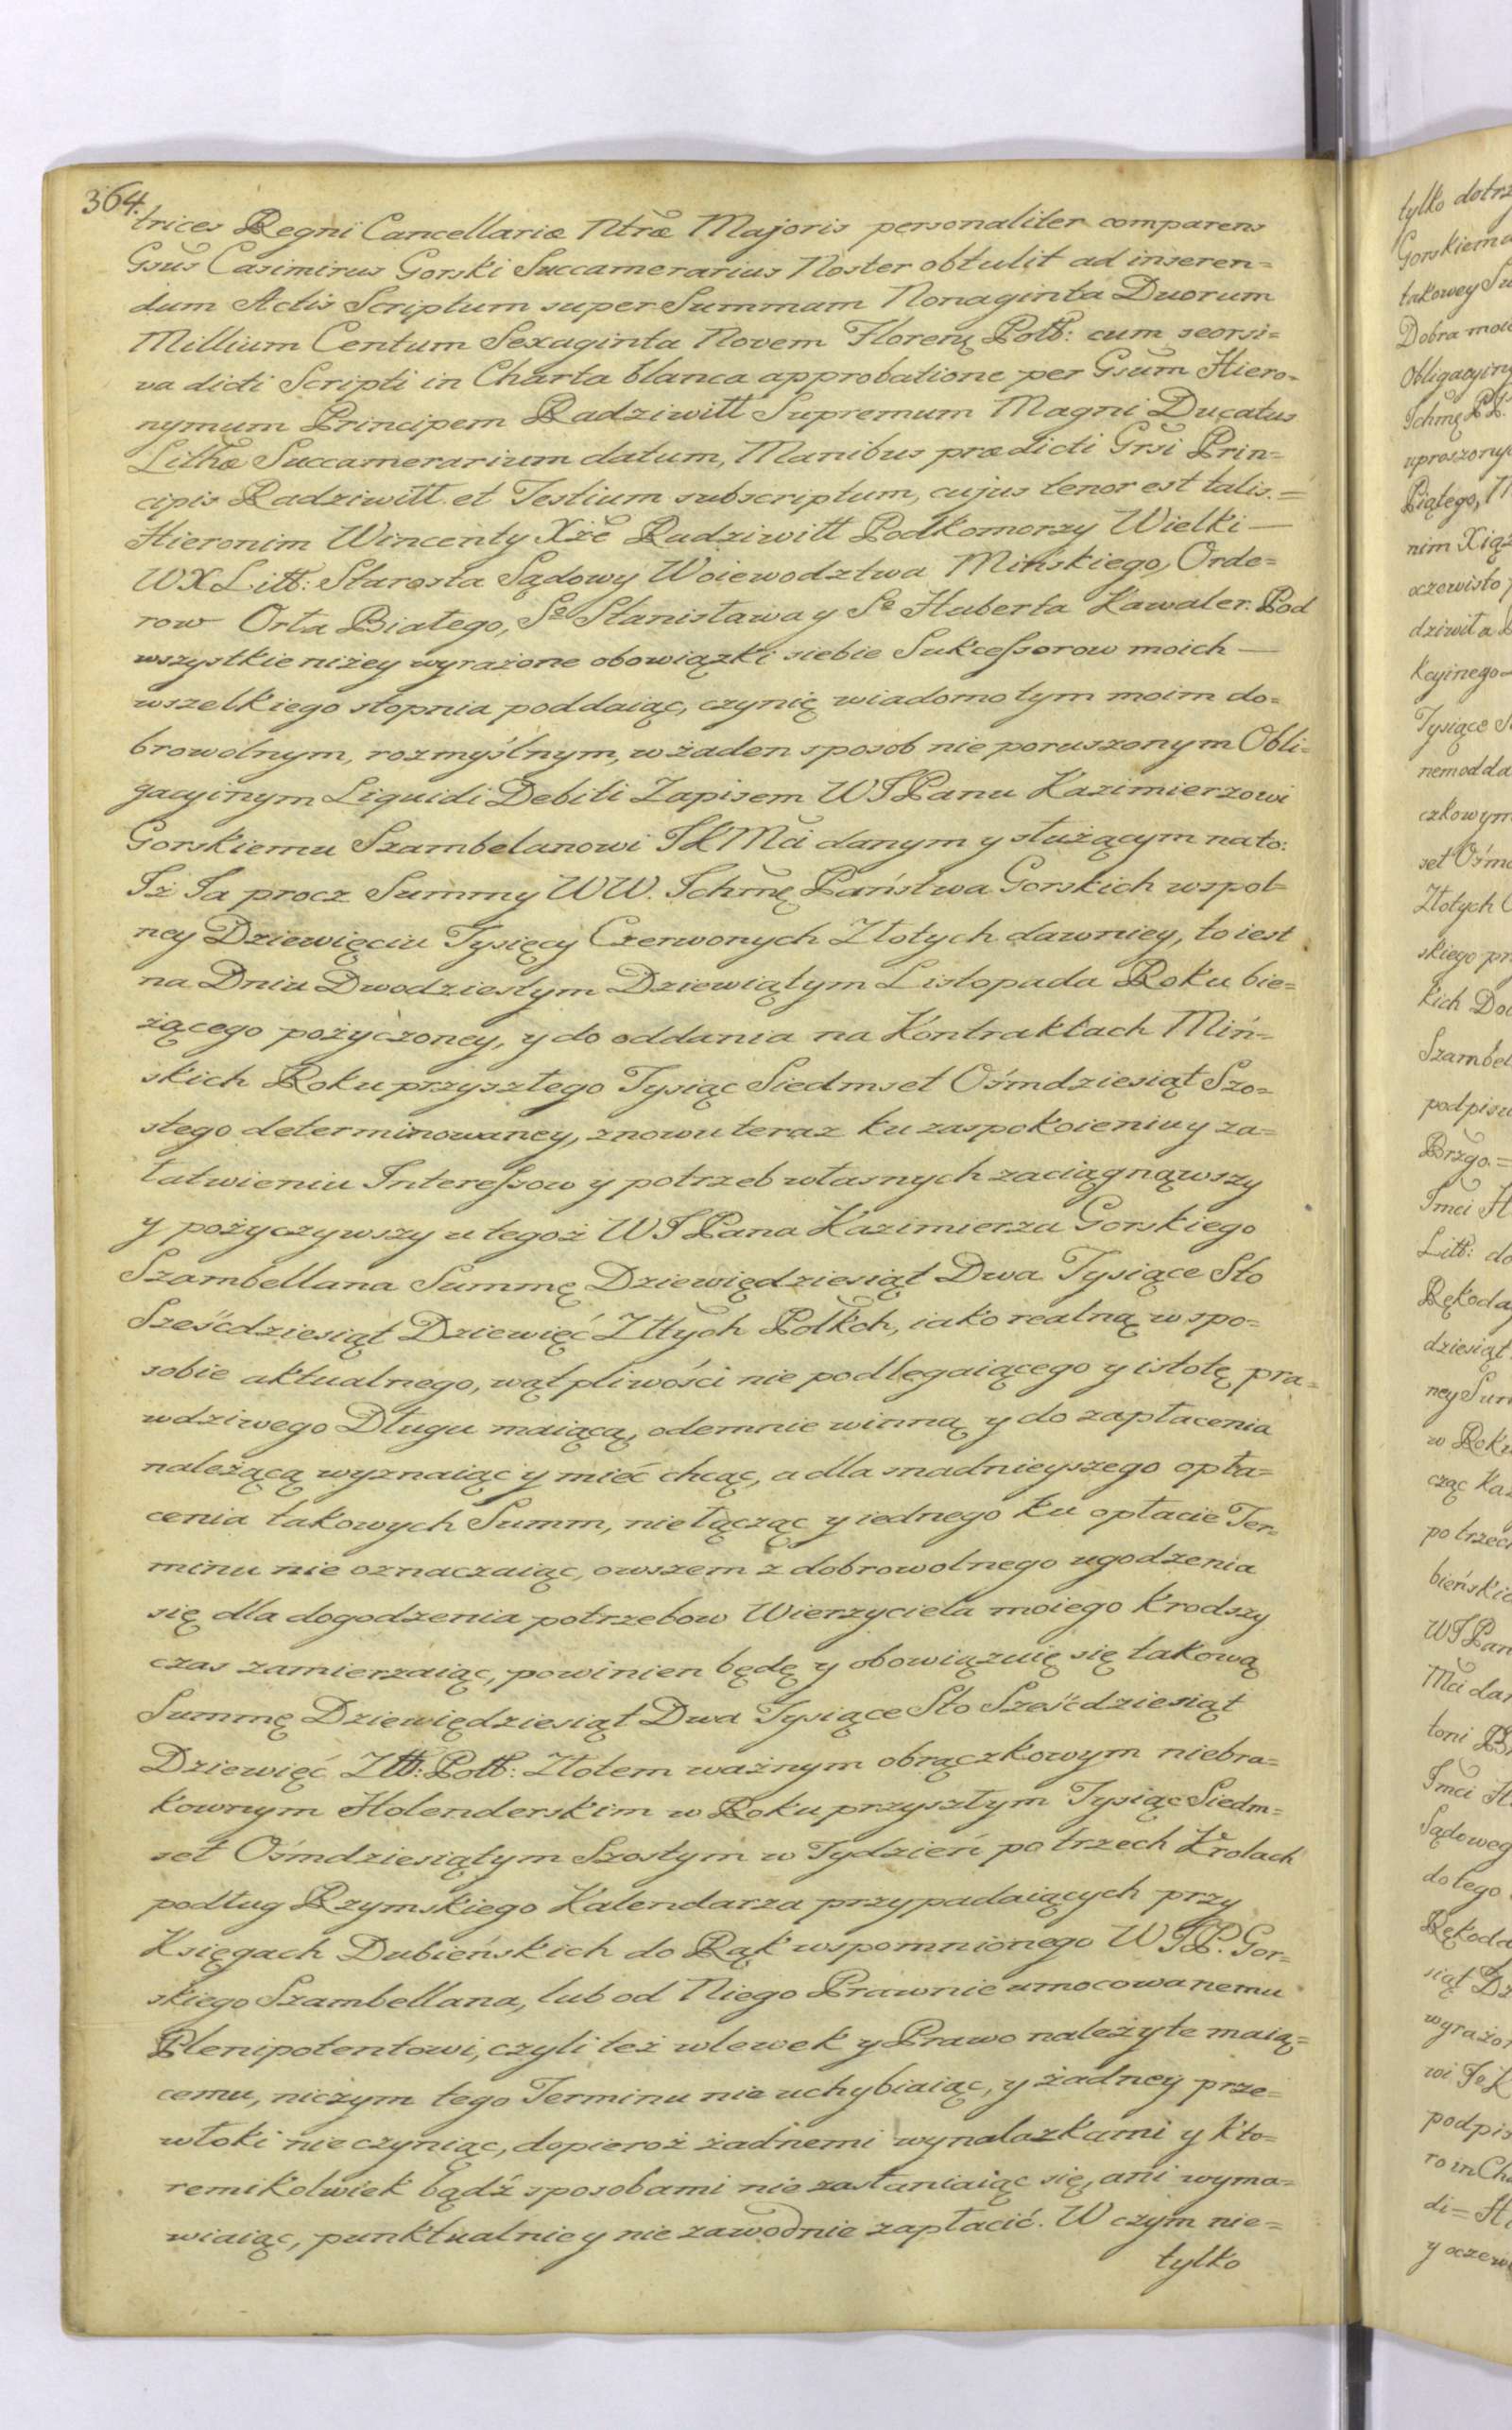 364.
trices Regni Cancellariæ Ntræ Majoris personaliter comparens
Gsus Casimirus Gorski Succamerarius Noster obtulit ad inseren=
dum Actis Scriptum super Summam Nonaginta Duorum
Millium Centum Sexaginta Novem Floren: Poll: cum seorsi=
va dicti Scripti in Charta blanca approbatione per Gsum Hiero=
nymum Principem Radziwill Supremum Magni Ducatus
Lithæ Succamerarium datum, Manibus prædicti Grsi Prin=
cipis Radziwiłł et Testium subscriptum, cujus tenor est talis.=
Hieronim Wincenty Xże Radziwiłł Podkomorzy Wielki —
WXLitt: Starosta Sądowy Woiewodztwa Mińskiego, Orde=
row Orła Białego, Sº Stanisława y Sº Huberta Kawaler. Pod
wszystkie niżey wyrażone obowiązki siebie Sukcessorow moich —
wszelkiego stopnia poddaiąc, czynię wiadomo tym moim do=
browolnym, rozmyślnym, w żaden sposob nie poruszonym Obli=
gacyinym Liquidi Debiti Zapisem WJPanu Kazimierzowi
Gorskiemu Szambelanowi JKMci danym y służącym na to:
Iż Ja procz Summy WW. Ichmę Państwa Gorskich wspol=
ney Dziewięciu Tysięcy Czerwonych Złotych dawniey, to iest
na Dniu Dwodziestym Dziewiątym Listopada Roku bie=
żącego pożyczoney, y do oddania na Kontraktach Miń=
skich Roku przyszłego Tysiąc Siedmset Ośmdziesiąt Szo=
stego determinowaney, znowu teraz ku zaspokoieniu y za=
łatwieniu Interessow y potrzeb własnych zaciągnąwszy
y pożyczywszy u tegoż WJPana Kazimierza Gorskiego
Szambellana Summę Dziewiędziesiąt Dwa Tysiące Sto
Sześćdziesiąt Dziewięć Złtych Polkch, iako realną w spo=
sobie aktualnego, wątpliwości nie podlegaiącego y istotę pra=
wdziwego Długu maiącą, odemnie winną y do zapłacenia
należącą wyznaiąc y mieć chcąc, a dla snadnieyszego opła=
cenia takowych Summ, nie łącząc y iednego ku opłacie Ter=
minu nie oznaczaiąc, owszem z dobrowolnego ugodzenia
się dla dogodzenia potrzebow Wierzyciela moiego krodszy
czas zamierzaiąc, powinien będę y obowiązuię się takową
Summę Dziewiędziesiąt Dwa Tysiące Sto Sześćdziesiąt
Dziewięć Złł: Poll: Złotem ważnym obrączkowym niebra=
kownym Holenderskim w Roku przyszłym Tysiąc Siedm=
set Ośmdziesiątym Szostym w Tydzień po trzech Krolach
podług Rzymskiego Kalendarza przypadaiących przy
Księgach Dubieńskich do Rąk wspomnionego WJP. Gor=
skiego Szambellana, lub od Niego Prawnie umocowanemu
Plenipotentowi, czyli też wlewek y Prawo należyte maią=
cemu, niczym tego Terminu nie uchybiaiąc, y żadney prze=
włoki nie czyniąc, dopieroż żadnemi wynalazkami y kto=
remikolwiek bądź sposobami nie zasłaniaiąc się, ani wyma=
wiaiąc, punktualnie y nie zawodnie zapłacić. W czym nie=
tylko
tylko
Gorskiem
takowey
Dobra
Obligacyiny
Ichmę PP.
uproszony
Piątego,
nim
oczewisto
dziwiła
kcyinego
Tysiące
nem odda
czkowym
set Ośm
Złotych
skiego
kich
Szambel
podpisu
Brzgo.=
Jmci
Litt:
Rękoda
dziesiąt
ney
w Roku
cząc
potrzec
bieńskic
WJPan
Mci
toni
Jmci
Sądoweg
do tego
Rękoda
siąt
wyrażon
wi
podpis
ro in
di=
y oczew